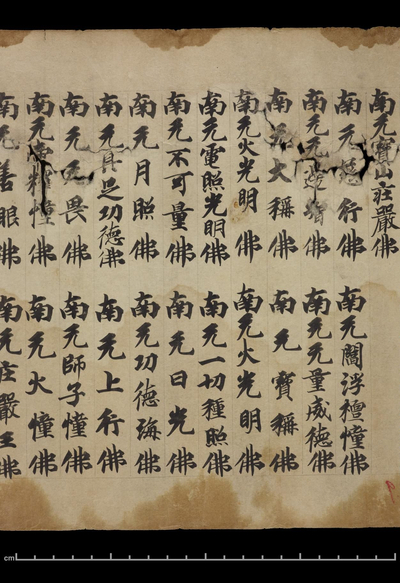 南无寶山莊嚴佛
南无行佛　南无閻浮檀幢佛
南无佛　南无无量威德佛
南无大稱佛　南无寶稱佛
南无火光明佛　南无火光明佛
南无電照光明佛　南无一切種照佛
南无不可量佛　南无日光佛
南无月照佛　南无功德海佛
南无具足功德佛　南无上行佛
南无无畏佛　南无師子幢佛
南无幢佛　南无火幢佛
南无善眼佛　南无莊嚴王佛
cm